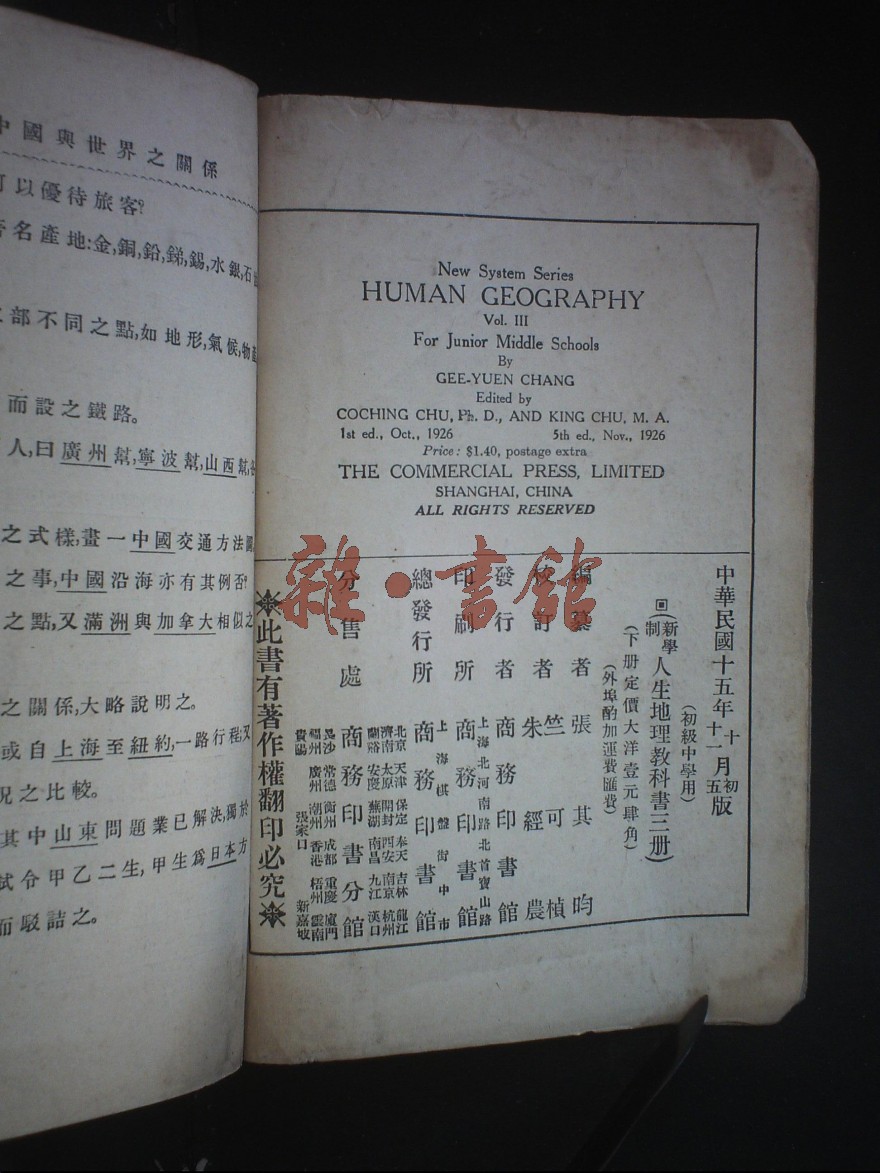 中國與世界之關係
可以優待旅客?
名產地:金,銅,鉛,銻,錫,水銀,石
部不同之點,如地形,氣候,物產
而設之鐵路。
人,曰廣州幫,寧波幫,山西幫,
之式樣,畫一中國交通方法圖,
之事,中國沿海亦有其例否?
之點,又滿洲與加拿大相似之
之關係,大略說明之。
或自上海至紐約,一路行程,又
況之比較。
其中山東問題業已解決,獨於
試令甲乙二生,甲生爲日本方
而駁詰之。
New System Series
HUMAN GEOGRAPHY
Vol. III
For Junior Middle Schools
By
GEE-YUEN CHANG
Edited by
COCHING CHU, Ph. D., AND KING CHU, M. A.
1st ed., Oct., 1926 5th ed., Nov., 1926
Price: $1.40, postage extra
THE COMMERCIAL PRESS, LIMITED
SHANGHAI, CHINA
ALL RIGHTS RESERVED
中華民國十五年十月初版
十一月五版
(初級中學用)
(新學制人生地理教科書三册)
(下册定價大洋壹元肆角)
(外埠酌加運費匯費)
編纂者 張其昀
校訂者 竺可楨
朱經農
發行者 商務印書館
上海北河南路北首寶山路
印刷所 商務印書館
上海棋盤街中市
總發行所 商務印書館
北京 天津 保定 奉天 吉林 龍江
濟南 太原 開封 西安 南京 杭州
蘭谿 安慶 蕪湖 南昌 九江 漢口
分售處 商務印書分館
長沙 常德 衡州 成都 重慶 廈門
福州 廣州 潮州 香港 梧州 雲南
貴陽 張家口 新嘉坡
此書有著作權翻印必究
雜·書館